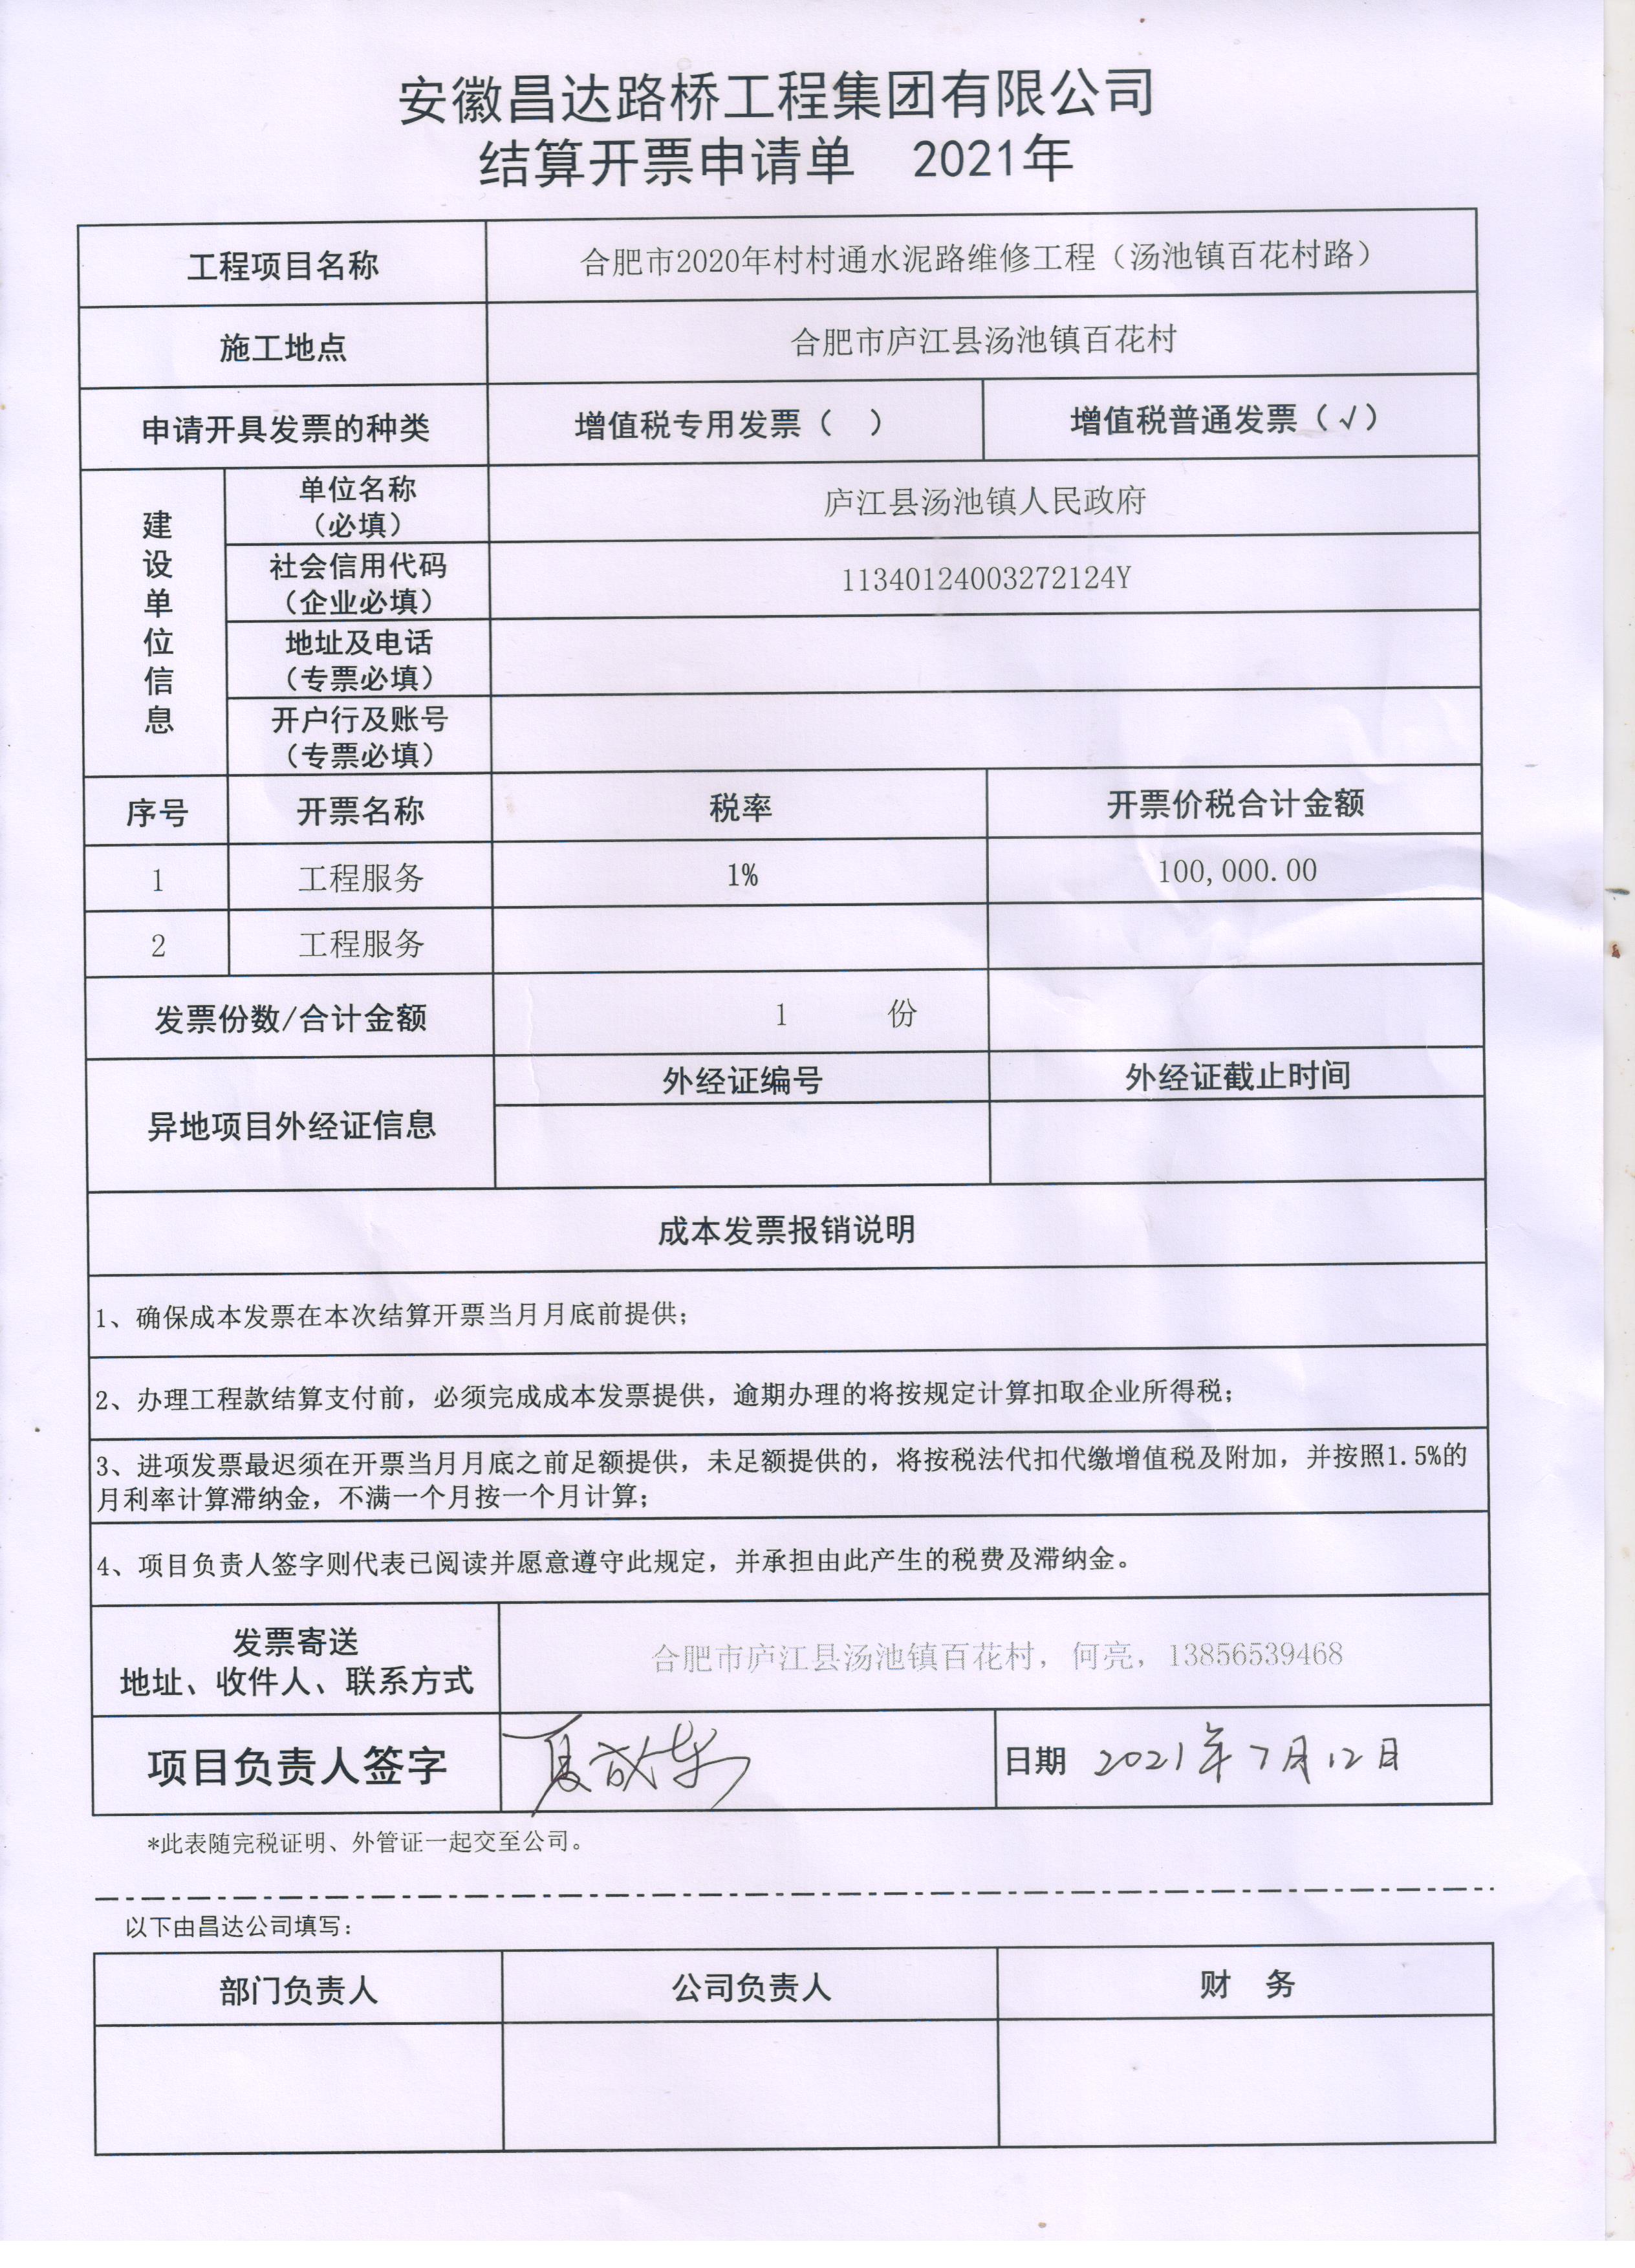 安徽昌达路桥工程集团有限公司
结算开票申请单 2021年
工程项目名称 合肥市2020年村村通水泥路维修工程（汤池镇百花村路）
施工地点 合肥市庐江县汤池镇百花村
申请开具发票的种类 增值税专用发票（ ） 增值税普通发票（√）
建设单位信息
单位名称
（必填）
庐江县汤池镇人民政府
社会信用代码
（企业必填）
11340124003272124Y
地址及电话
（专票必填）
开户行及账号
（专票必填）
序号 开票名称 税率 开票价税合计金额
1 工程服务 1% 100,000.00
2 工程服务
发票份数/合计金额 1 份
异地项目外经证信息 外经证编号 外经证截止时间
成本发票报销说明
1、确保成本发票在本次结算开票当月月底前提供；
2、办理工程款结算支付前，必须完成成本发票提供，逾期办理的将按规定计算扣取企业所得税；
3、进项发票最迟须在开票当月月底之前足额提供，未足额提供的，将按税法代扣代缴增值税及附加，并按照1.5%的
月利率计算滞纳金，不满一个月按一个月计算；
4、项目负责人签字则代表已阅读并愿意遵守此规定，并承担由此产生的税费及滞纳金。
发票寄送
地址、收件人、联系方式
合肥市庐江县汤池镇百花村，何亮，13856539468
项目负责人签字 日期 2021年7月12日
*此表随完税证明、外管证一起交至公司。
以下由昌达公司填写：
部门负责人 公司负责人 财 务